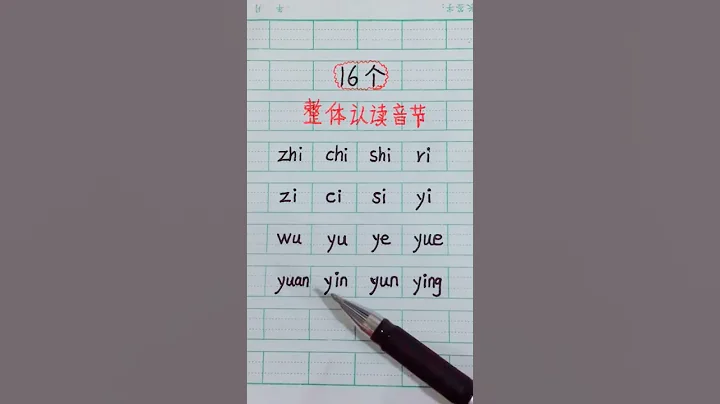 16个
整体认读音节
zhi chi shi ri
zi ci si yi
wu yu ye yue
yuan yin yun ying